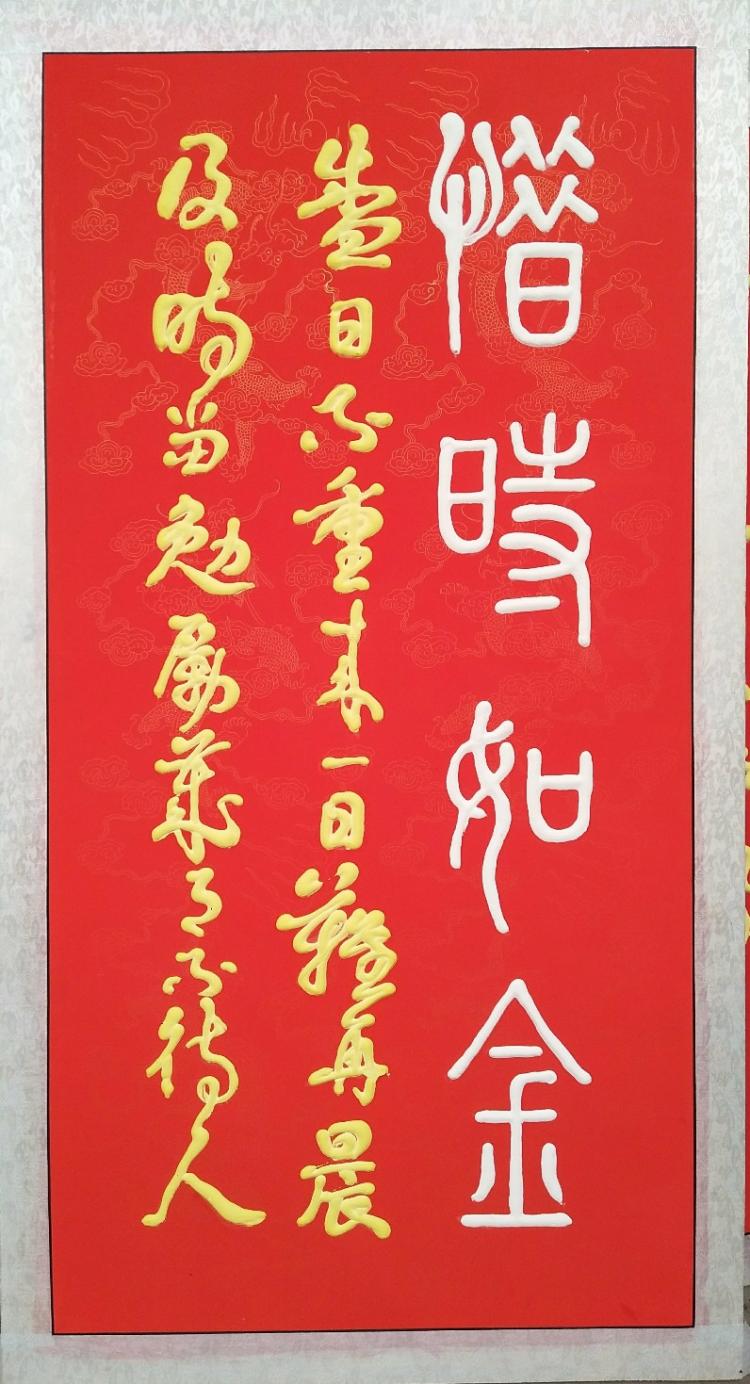 惜時如金
盛日不重來一日難再晨
及時當勉勵歲月不待人